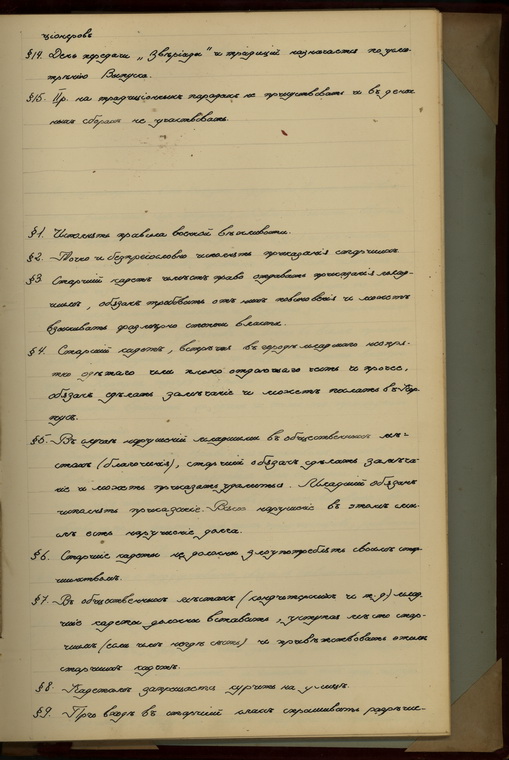 ціонеровъ
§14. День передачи „Звѣріады" и традицій назначается по усмо-
трѣнію Выпуска.
§15. на традиціонныхъ парадахъ не присутствовать и въ
не участвовать
§1. Исполнять правила военной вѣжливости.
§2. Точно и безпрекословно исполнять приказанія старшихъ
§3. Старшій кадетъ имѣетъ право отдавать приказанія млад-
шимъ, обязанъ требовать отъ нихъ повиновенія и можетъ
взыскивать размѣрно власти.
§4. Старшій кадетъ, встрѣтя въ городѣ младшаго неопря-
тно одѣтаго или плохо отдающаго честь и прочее,
обязанъ сдѣлать замѣчаніе и можетъ послать въ Кор-
пусъ.
§5. Въ случаѣ нарушенія младшими въ общественныхъ мѣ-
стахъ (благочинія), старшій обязанъ сдѣлать замѣча-
ніе и можетъ приказать удалиться. Младшій обязанъ
исполнять приказаніе. нарушеніе въ этомъ
есть нарушеніе долга.
§6. Старшіе кадеты не должны злоупотреблять своимъ стар-
шинствомъ.
§7. Въ общественныхъ мѣстахъ (кондитерскихъ и т.д) млад-
шіе кадеты должны вставать, уступая мѣсто стар-
шимъ (если имъ негдѣ сѣсть) и привѣтствовать этихъ
старшихъ кадетъ.
§8. Кадетамъ запрещается курить на улицѣ.
§9. При входѣ въ старшій классъ спрашивать разрѣше-